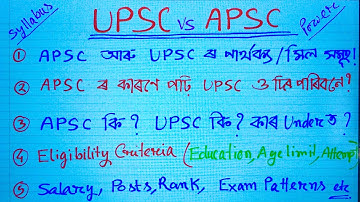 Syllabus UPSC vs APSC Powers
① APSC আৰু UPSC ৰ পাৰ্থক্য/মিল সমূহ!
② APSC ৰ কাৰণে পঢ়ি UPSC ও দিব পাৰিবনে?
③ APSC কি? UPSC কি? কাৰ Under ত?
④ Eligibility Criteria (Education, Age limit, Attempt)
⑤ Salary, Posts, Rank, Exam Patterns etc